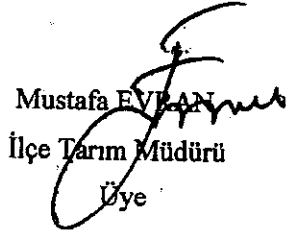 Mustafa EVRAN
İlçe Tarım Müdürü
Üye